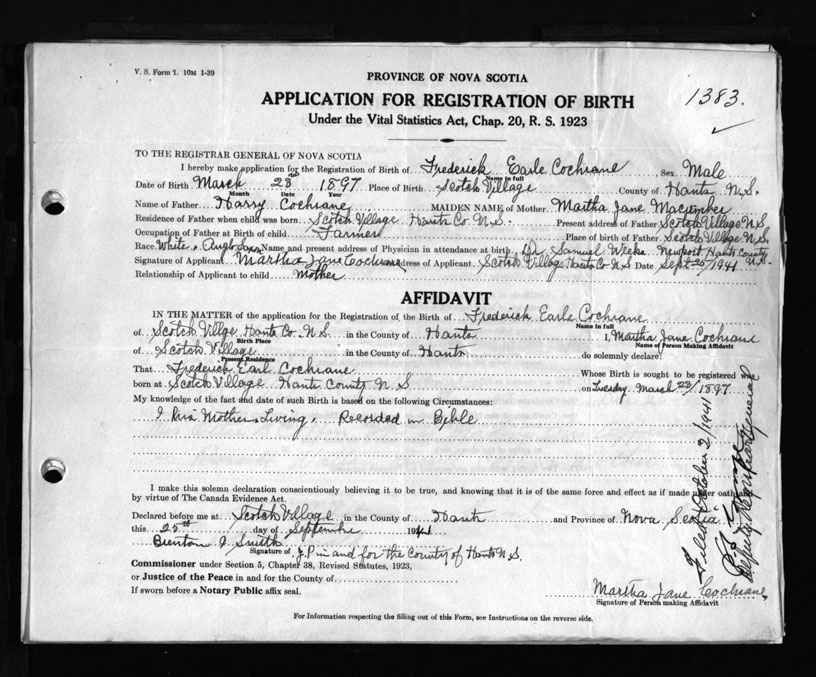 V. S. Form 1. 10M 1-39
PROVINCE OF NOVA SCOTIA
APPLICATION FOR REGISTRATION OF BIRTH
1383.
Under the Vital Statistics Act, Chap. 20, R. S. 1923
TO THE REGISTRAR GENERAL OF NOVA SCOTIA
I hereby make application for the Registration of Birth of Frederick Earle Cochrane Sex Male
Name in full
Date of Birth March 28 1897 Place of Birth Scotch Village County of Hants N.S.
Month Date Year
Name of Father Harry Cochrane MAIDEN NAME of Mother Martha Jane Macumber
Residence of Father when child was born Scotch Village Hants Co N.S. Present address of Father Scotch Village N.S.
Occupation of Father at Birth of child Farmer Place of birth of Father Scotch Village N.S.
Race White, Anglo Name and present address of Physician in attendance at birth Dr Samuel Newport Hants County N.S.
Signature of Applicant Martha Jane Cochrane Address of Applicant Scotch Village Hants Co N.S Date Sept 25/1941
Relationship of Applicant to child Mother
AFFIDAVIT
IN THE MATTER of the application for the Registration of the Birth of Frederick Earle Cochrane
Name in full
of Scotch Villge Hants Co. N.S. in the County of Hants I, Martha Jane Cochrane
Birth Place Name of Person Making Affidavit
of Scotch Village in the County of Hants do solemnly declare:
Present Residence
That Frederick Earl Cochrane Whose Birth is sought to be registered was
born at Scotch Village Hants County N S on Tuesday March /1897
My knowledge of the fact and date of such Birth is based on the following Circumstances:
I Mother Living. Recorded in Bible
I make this solemn declaration conscientiously believing it to be true, and knowing that it is of the same force and effect as if made under oath and
by virtue of The Canada Evidence Act.
Declared before me at Scotch Village in the County of Hants and Province of Nova Scotia
this 25th day of September 1941
Burton Smith
Signature of J.P in and for the County of Hants N.S.
Commissioner under Section 5, Chapter 38, Revised Statutes, 1923,
or Justice of the Peace in and for the County of
If sworn before a Notary Public affix seal.
Martha Jane Cochrane
Signature of Person making Affidavit
For Information respecting the filling out of this Form, see Instructions on the reverse side.
Filed October 2/1941
Deputy Registrar General